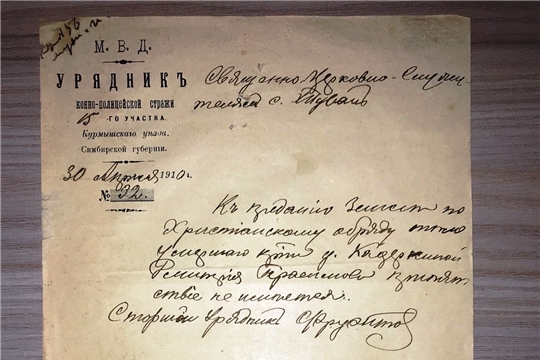 М. В. Д.
УРЯДНИКЪ
КОННО-ПОЛИЦЕЙСКОЙ СТРАЖИ
15-ГО УЧАСТКА.
Курмышскаго уѣзда,
Симбирской губерніи.
30 Апрѣля 1910 г.
№ 92.
Священно Церковно-Служи-
телямъ с. Туванъ
Къ преданію Земли по
Христіанскому обряду тѣло
умершаго кр. д. Кадеркиной
Дмитрія препят
ствіе не имѣется.
Старшій Урядникъ